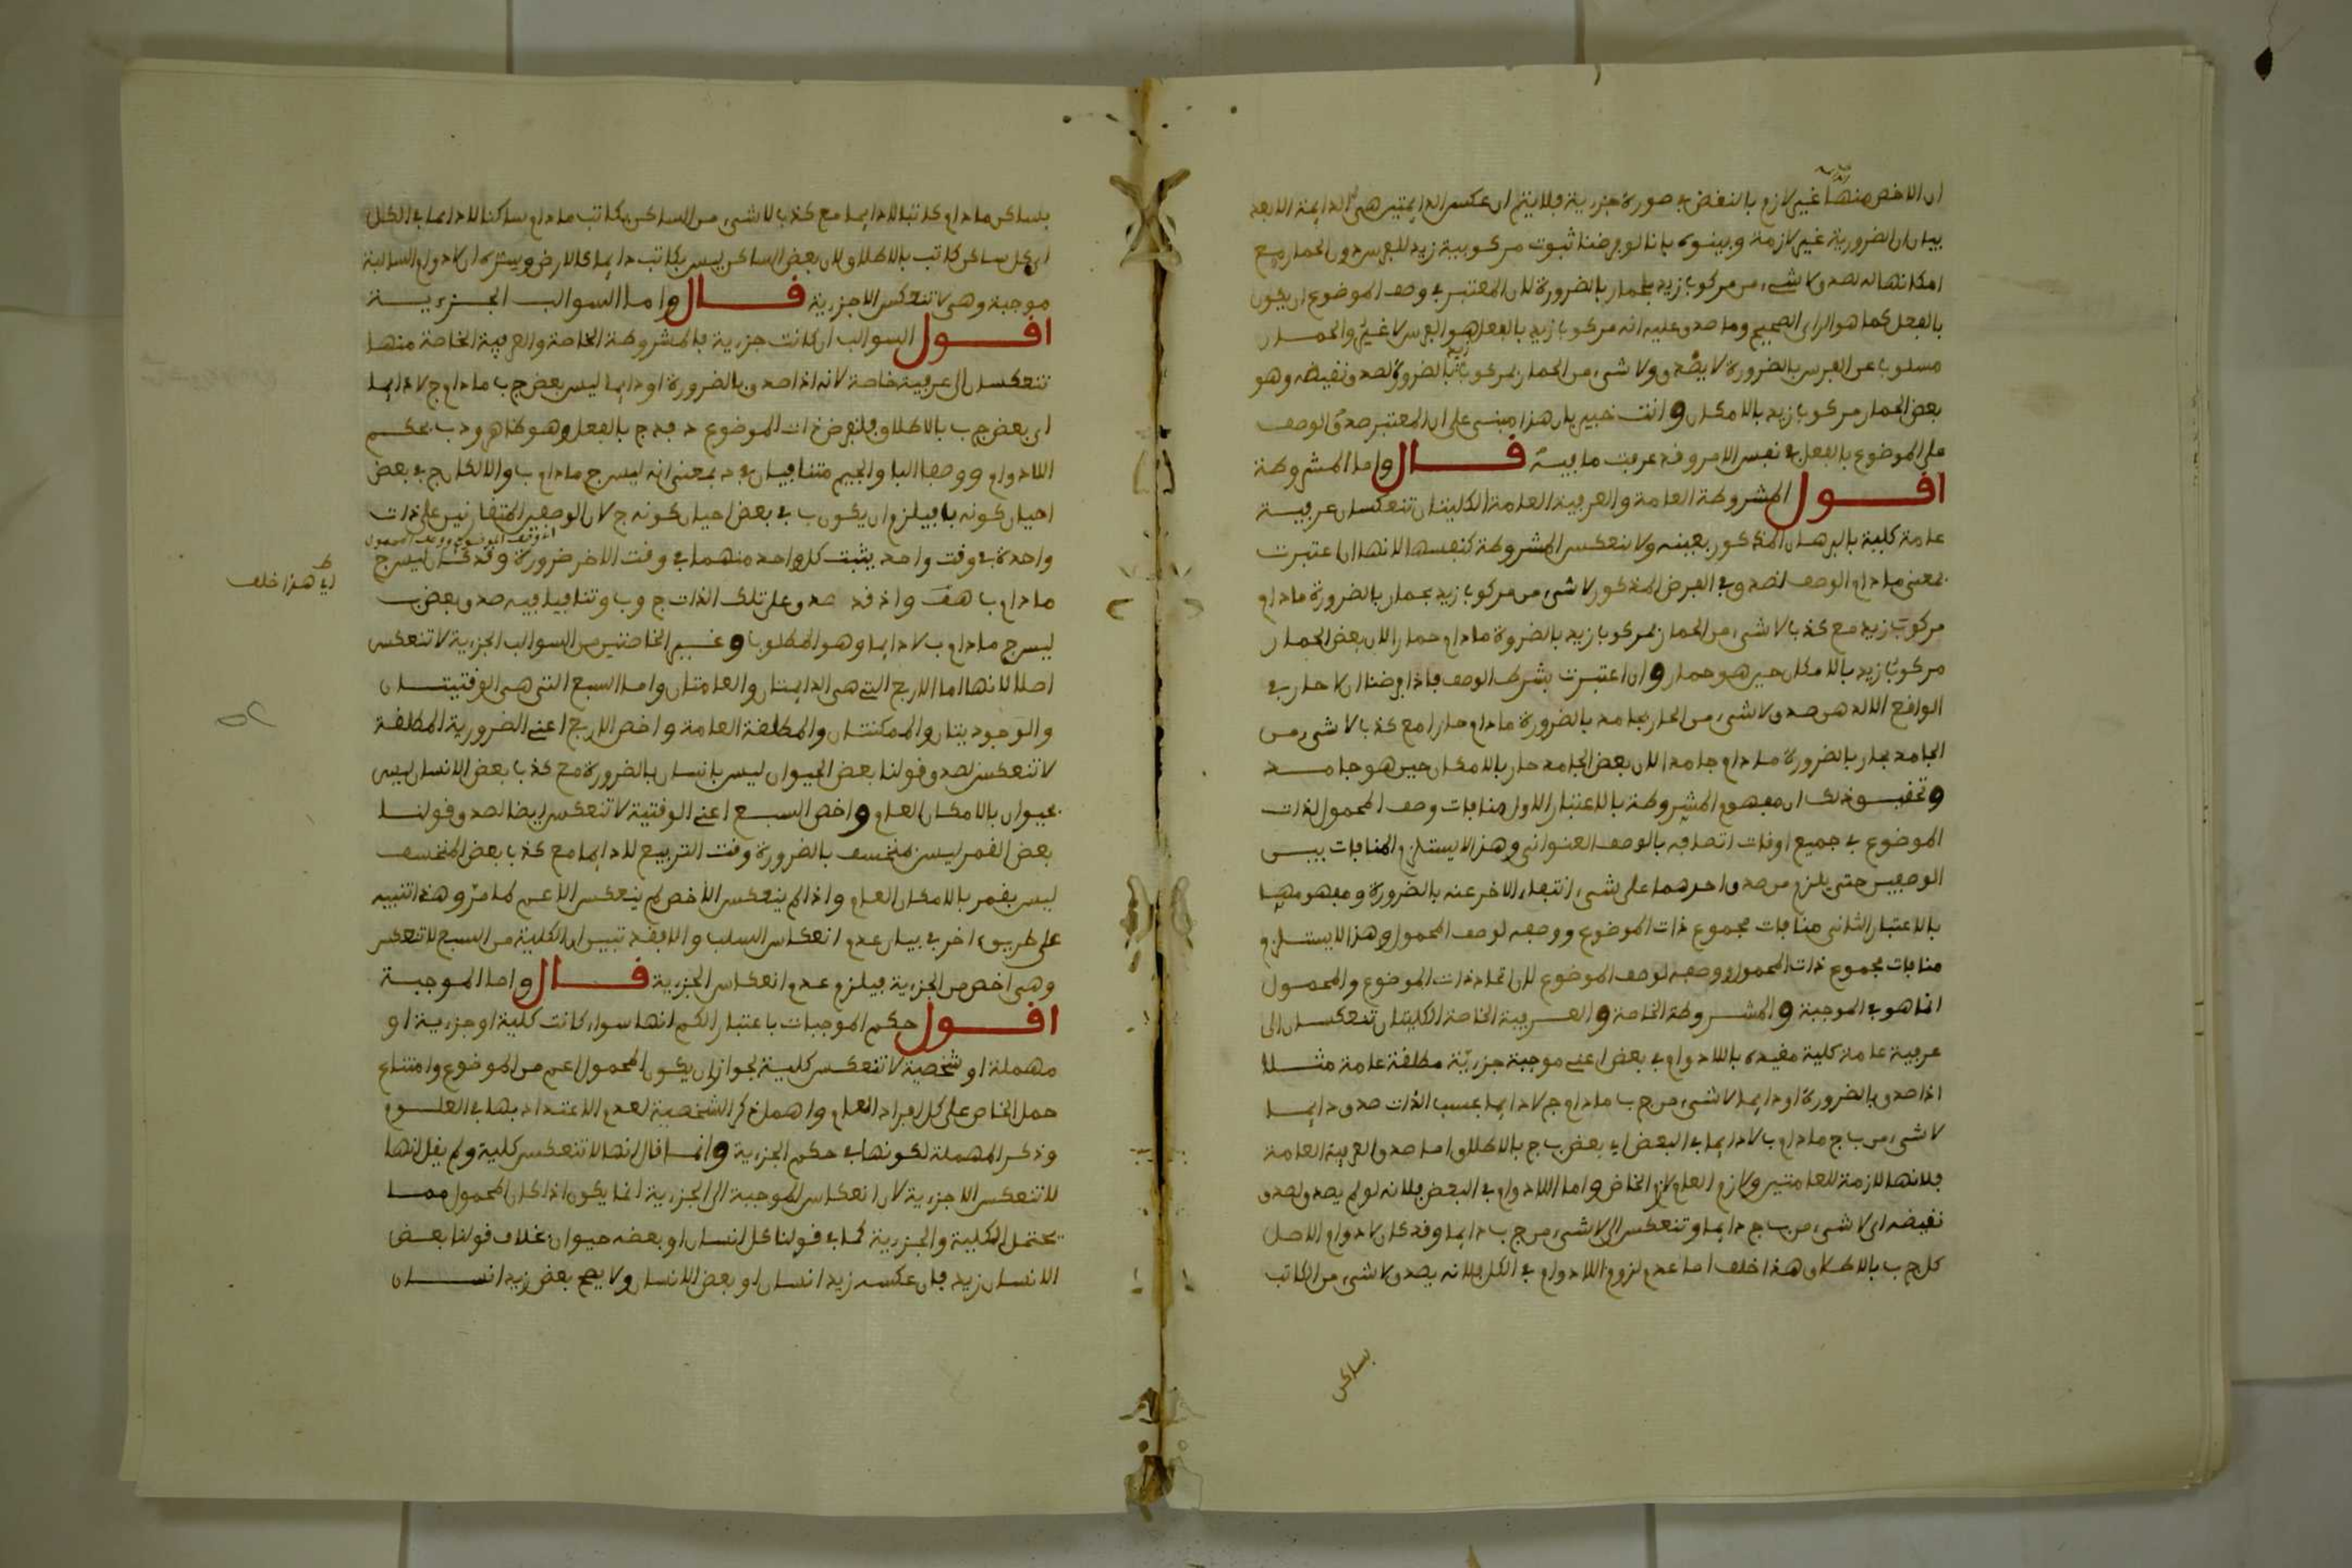 ان الاخص منها غير لازم بالنقض في صورة جزرية فلا يتم ان عكس الدايمتين هي الدايمة الا بعد
بيان ان الضرورية غير لازمة وبينوه بانا لو فرضنا ثبوت مركوبية زيد للفرس دون الحمار مع
امكانها له لصدق لا شيء من مركوب زيد بحمار بالضرورة لان المعتبر في وصف الموضوع ان يكون
بالفعل كما هو الراي الصحيح وما صدق عليه انه مركوب زيد بالفعل هو الفرس لا غير والحمار
مسلوب عن الفرس بالضرورة لا يصدق ولا شيء من الحمار بمركوب زيد بالضرورة لصدق نقيضه وهو
بعض الحمار مركوب زيد بالامكان وانت خبير بان هذا مبني على ان المعتبر صدق الوصف
على الموضوع بالفعل في نفس الامر وقد عرفت ما فيه قال واما المشروطة
اقول المشروطة العامة والعرفية العامة الكليتان تنعكسان عرفية
عامة كلية بالبرهان المذكور بعينه ولا تنعكس المشروطة كنفسها لانها ان اعتبرت
بمعنى ما دام الوصف لصدق في الفرض المذكور لا شيء من مركوب زيد بحمار بالضرورة ما دام
مركوب زيد مع كذب لا شيء من الحمار بمركوب زيد بالضروة ما دام حمارا لان بعض الحمار
مركوب زيد بالامكان حين هو حمار وان اعتبرت بشرط الوصف فاذا فرضنا ان لا حار في
الواقع الا الدهن صدق لا شيء من الحار بجامد بالضرورة ما دام حارا مع كذب لا شيء من
الجامد بحار بالضرورة ما دام جامدا لان بعض الجامد حار بالامكان حين هو جامد
وتحقيق ذلك ان مفهوم المشروطة بالاعتبار الاول منافات وصف المحمول لذات
الموضوع في جميع اوقات اتصافه بالوصف العنواني وهذا لا يستلزم المنافات بين
الوصفين حتى يلزم من صدق احدهما على شيء انتفاء الاخر عنه بالضرورة ومفهومها
بالاعتبار الثاني منافات مجموع ذات الموضوع ووصفه لوصف المحمول وهذا لا يستلزم
منافات مجموع ذات المحمول ووصفه لوصف الموضوع لان اتحاد ذات الموضوع والمحمول
انما هو في الموجبة والمشروطة الخاصة والعرفية الخاصة الكليتان تنعكسان الى
عرفية عامة كلية مقيدة باللادوام في بعض اعني موجبة جزريّة مطلقة عامة مثلا
اذا صدق بالضرورة او دايما لا شيء من ج ب ما دام ج لا دايما بحسب الذات صدق دايما
لا شيء من ب ج ما دام ب لا دايما في البعض اي بعض ب ج بالاطلاق اما صدق العرفية العامة
فلانها لازمة للعامتين ولازم العام لازم الخاص واما اللادوام في البعض فلانه لو لم يصدق لصدق
نقيضه اي لا شيء من ب ج دايما وتنعكس الى لا شيء من ج ب دايما وقد كان لا دوام الاصل
كل ج ب بالاطلاق هذا خلف اما عدم لزوم اللادوام في الكل فلانه يصدق لا شيء من الكاتب
بساكن
بساكن ما دام كاتبا لا دايما مع كذب لا شيء من الساكن بكاتب ما دام ساكنا لا دايما في الكل
اي كل ساكن كاتب بالاطلاق لان بعض الساكن ليس بكاتب دايما كالارض وسره ان لا دوام السالبة
موجبة وهي لا تنعكس الا جزرية قال واما السوالب الجزرية
اقول السوالب ان كانت جزرية فالمشروطة الخاصة والعرفية الخاصة منها
تنعكسان الى عرفية خاصة لانه اذا صدق بالضرورة او دايما ليس بعض ج ب ما دام ج لا دايما
اي بعض ج ب بالاطلاق فلنفرض ذات الموضوع د فد ج بالفعل وهو ظاهر ود ب بحكم
اللادوام ووصفا البا والجيم متنافيان في د بمعنى انه ليس ج ما دام ب والا لكان ج في بعض
احيان كونه با فيلزم ان يكون ب في بعض احيان كونه ج لان الوصفين المتقارنين على ذات
اي وقت الموضوع ووقت المحمول
واحدة في وقت واحد يثبت كل واحد منهما في وقت الاخر ضرورة وقد كان ليس ج
اي هذا خلف
ما دام ب هف واذ قد صدق على تلك الذات ج وب وتنافيا فيه صدق بعض ب
ليس ج ما دام ب لا دايما وهو المطلوب وغير الخاصتين من السوالب الجزرية لا تنعكس
اصلا لانها اما الاربع التي هي الدايمتان والعامتان واما السبع التي هي الوقتيتان
والوجوديتان والممكنتان والمطلقة العامة واخص الاربع اعني الضرورية المطلقة
لا تنعكس لصدق قولنا بعض الحيوان ليس بانسان بالضرورة مع كذب بعض الانسان ليس
بحيوان بالامكان العام واخص السبع اعني الوقتية لا تنعكس ايضا لصدق قولنا
بعض القمر ليس بمنخسف بالضرورة وقت التربيع لا دايما مع كذب بعض المنخسف
ليس بقمر بالامكان العام واذا لم ينعكس الاخص لم ينعكس الاعم كما مرّ وهذا تنبيه
على طريق اخر في بيان عدم انعكاس السلب والا فقد تبين ان الكلية من السبع لا تنعكس
وهي اخص من الجزرية فيلزم عدم انعكاس الجزرية قال واما الموجبة
اقول حكم الموجبات باعتبار الكم انها سواء كانت كلية او جزرية او
مهملة او شخصية لا تنعكس كلية لجواز ان يكون المحمول اعم من الموضوع وامتناع
حمل الخاص على كل افراد العام واهمل ذكر الشخصية لعدم الاعتداد بها في العلوم
وذكر المهملة لكونها في حكم الجزرية وانما قال انها لا تنعكس كلية ولم يقل انها
لا تنعكس الا جزرية لان انعكاس الموجبة الى الجزرية انما يكون اذا كان المحمول مما
يحتمل الكلية والجزرية كما في قولنا كل انسان او بعضه حيوان بخلاف قولنا بعض
الانسان زيد فان عكسه زيد انسان او بعض الانسان ولا يصح بعض زيد انسان